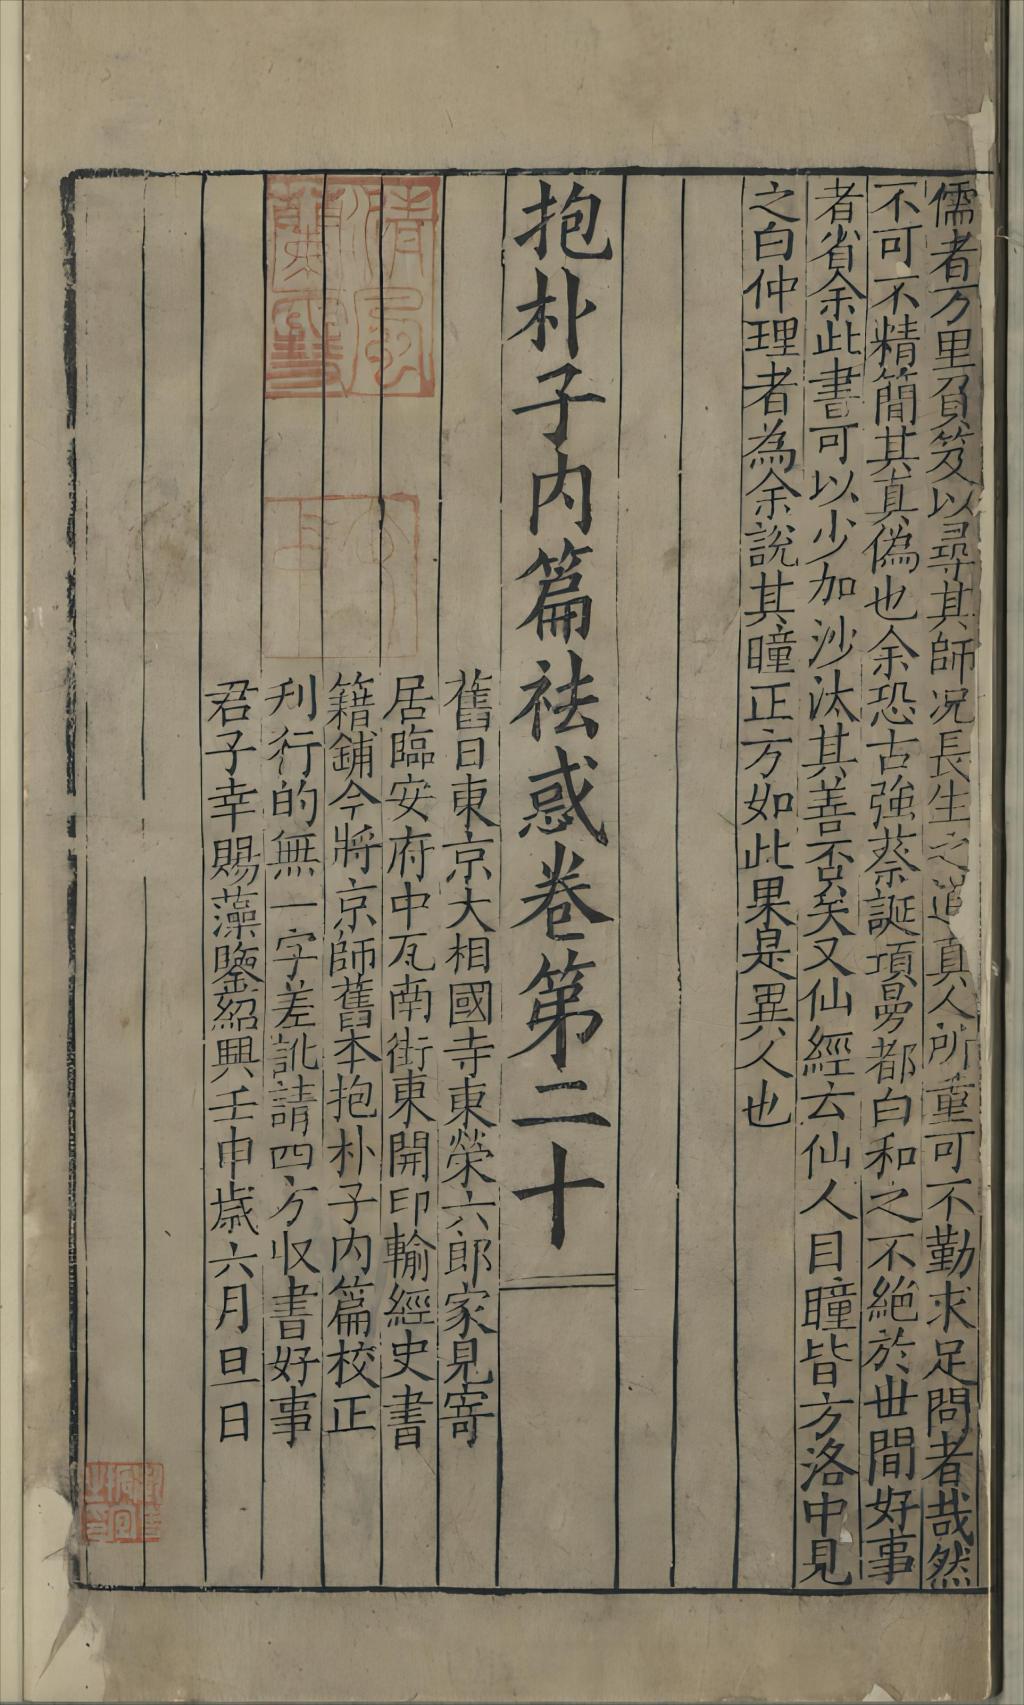 儒者万里負笈以尋其師况長生之道真人所重可不勤求足問者哉然
不可不精簡其真偽也余恐古強蔡誕項曼都白和之不絕於世間好事
者省余此書可以少加沙汰其善否矣又仙經云仙人目瞳皆方洛中見
之白仲理者為余說其瞳正方如此果是異人也
抱朴子内篇祛惑卷第二十
舊日東京大相國寺東榮六郎家見寄
居臨安府中瓦南街東開印輸經史書
籍鋪今將京師舊本抱朴子内篇校正
刋行的無一字差訛請四方収書好事
君子幸賜藻鑒紹興壬申歲六月旦日